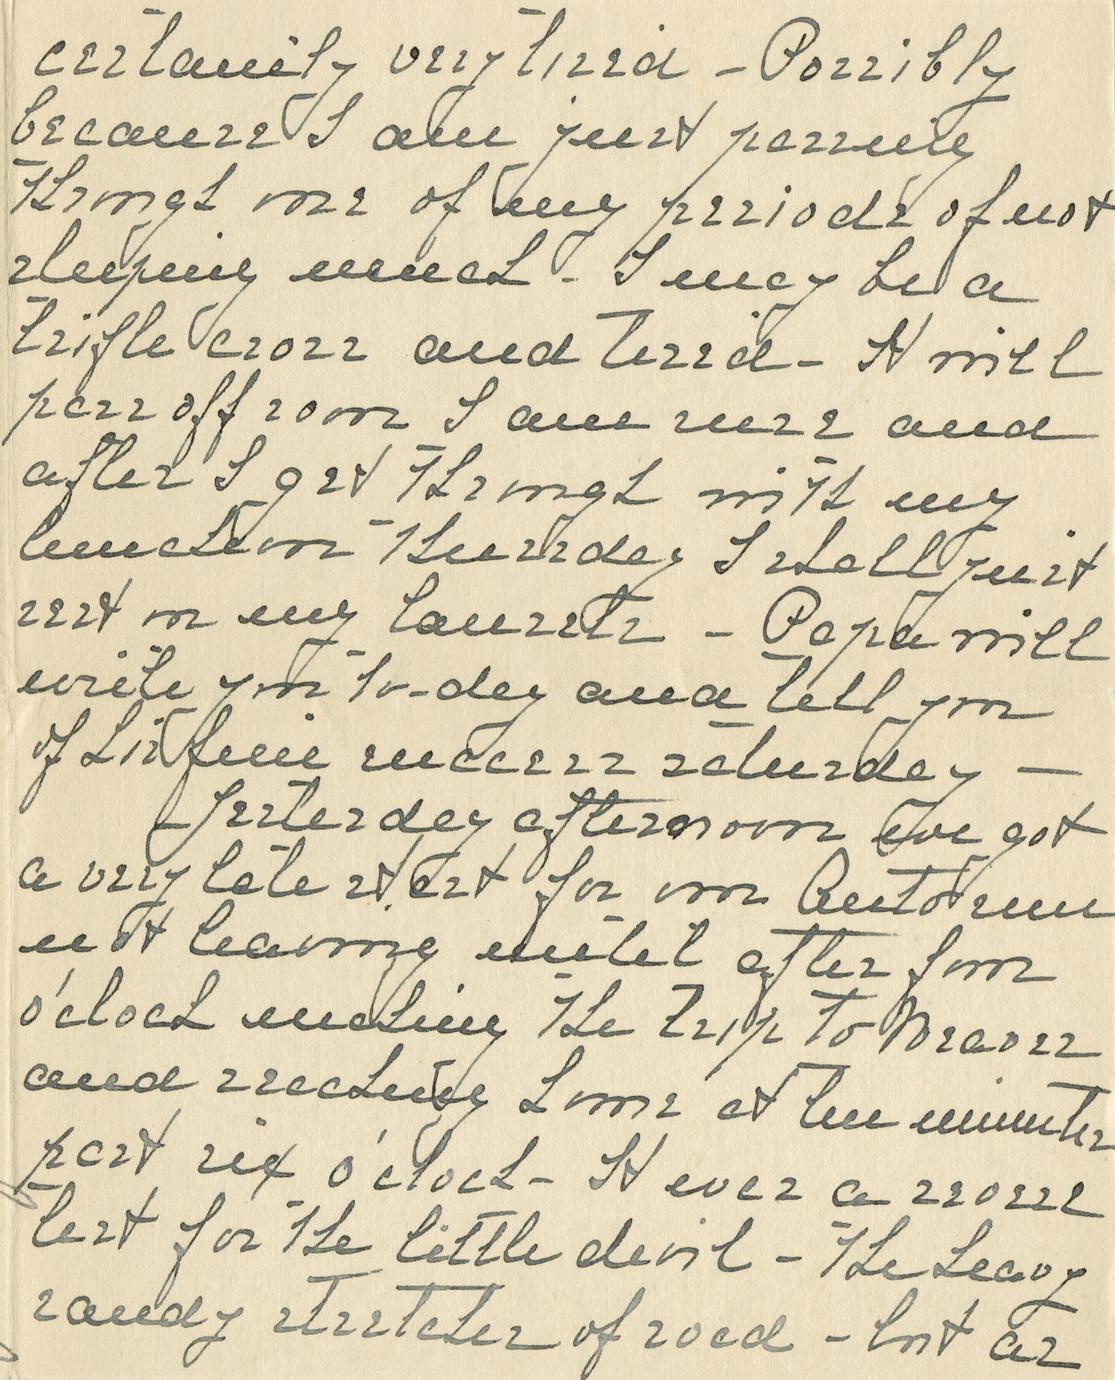 certainly very tired - Possibly
because I am just passing
through one of my periods of not
sleeping much - I may be a
trifle cross and tired - It will
pass off soon I am sure and
after I get through with my
luncheon Thursday I shall just
rest on my laurels - Papa will
write you to-day and tell you
of his fine success Saturday -
Yesterday afternoon we got
a very late start for our Auto run
not leaving until after four
o'clock making the trip to
and reaching home at ten minutes
past six o'clock - It was a severe
test for the little devil - The heavy
sandy stretches of road - but as